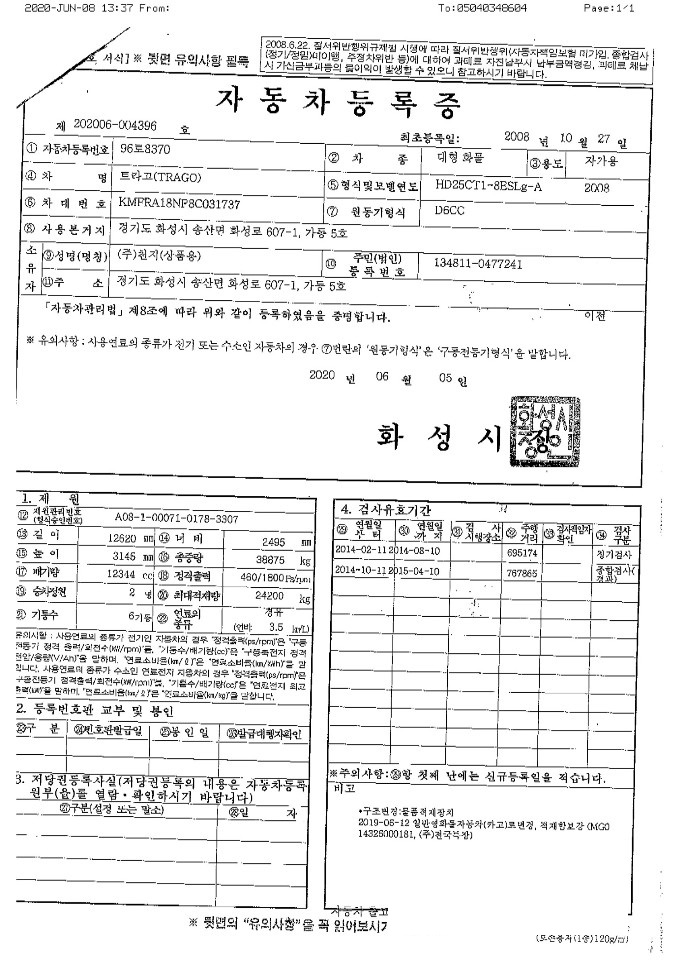 2020-JUN-08 13:37 From: To:05040348604 Page:1/1
호 서식] ※ 뒷면 유의사항 필독
2008.6.22. 질서위반행위규제법 시행에 따라 질서위반행위(자동차책임보험 미가입, 종합검사
(정기/정밀)미이행, 주정차위반 등)에 대하여 과태료 자진납부시 납부금액경감, 과태료 체납
시 가산금부과등의 불이익이 발생할 수 있으니 참고하시기 바랍니다.
자동차등록증
제 202006-004396 호
최초등록일: 2008 년 10 월 27 일
① 자동차등록번호 96로8370 ② 차 종 대형 화물 ③용도 자가용
④ 차 명 트라고(TRAGO) ⑤형식및모델연도 HD25CT1-8ESLg-A 2008
⑥ 차대번호 KMFRA18NP8C031737 ⑦ 원동기형식 D6CC
⑧ 사용본거지 경기도 화성시 송산면 화성로 607-1, 가동 5호
소유자 ⑨성명(명칭) (주)원지(상품용) ⑩ 주민(법인)등록번호 134811-0477241
⑪주 소 경기도 화성시 송산면 화성로 607-1, 가동 5호
「자동차관리법」제8조에 따라 위와 같이 등록하였음을 증명합니다. 이전
※ 유의사항 : 사용연료의 종류가 전기 또는 수소인 자동차의 경우 ⑦번란의 '원동기형식'은 '구동전동기형식'을 말합니다.
2020 년 06 월 05 일
화성시
1. 제 원
⑫ 제원관리번호(형식승인번호) A08-1-00071-0178-3307
⑬ 길이 12620 mm ⑭ 너비 2495 mm
⑮ 높이 3145 mm ⑯ 총중량 38875 kg
⑰ 배기량 12344 cc ⑱ 정격출력 460/1800 Ps/rpm
⑲ 승차정원 2 명 ⑳ 최대적재량 24200 kg
㉑ 기통수 6기통 ㉒ 연료의 종류 경유 (연비 3.5 km/L)
유의사항 : 사용연료의 종류가 전기인 자동차의 경우 "정격출력(ps/rpm)"은 "구동
전동기 정격 출력/회전수(kW/rpm)"를, "기통수/배기량(cc)"은 "구동축전지 정격
전압/용량(V/Ah)"을 말하며, "연료소비율(km/ℓ)"은 "연료소비율(km/kWh)"을 말
합니다. 사용연료의 종류가 수소인 연료전지 자동차의 경우 "정격출력(ps/rpm)"은
"구동전동기 정격출력/회전수(kW/rpm)"를, "기통수/배기량(cc)"은 "연료전지 최고
출력(kW)"을 말하며, "연료소비율(km/ℓ)"은 "연료소비율(km/kg)"을 말합니다.
2. 등록번호판 교부 및 봉인
㉓구 분 ㉔번호판발급일 ㉕봉 인 일 ㉖발급대행자확인
3. 저당권등록사실(저당권등록의 내용은 자동차등록
원부(을)를 열람・확인하시기 바랍니다)
㉗구분(설정 또는 말소) ㉘일 자
4. 검사유효기간
㉙ 연월일부터 ㉚ 연월일까지 ㉛ 검사시행장소 ㉜ 주행거리 ㉝ 검사책임자확인 ㉞ 검사구분
2014-02-11 2014-08-10 695174 정기검사
2014-10-11 2015-04-10 767865 종합검사(경과)
※주의사항:㉙항 첫째 난에는 신규등록일을 적습니다.
비고
•구조변경:물품적재장치
2019-06-12 일반형화물자동차(카고)로변경, 적재함보강 (MG0
14326000181, (주)전국특장)
※ 뒷면의 "유의사항"을 꼭 읽어보시기
(보존용지(1종)120g/㎡)